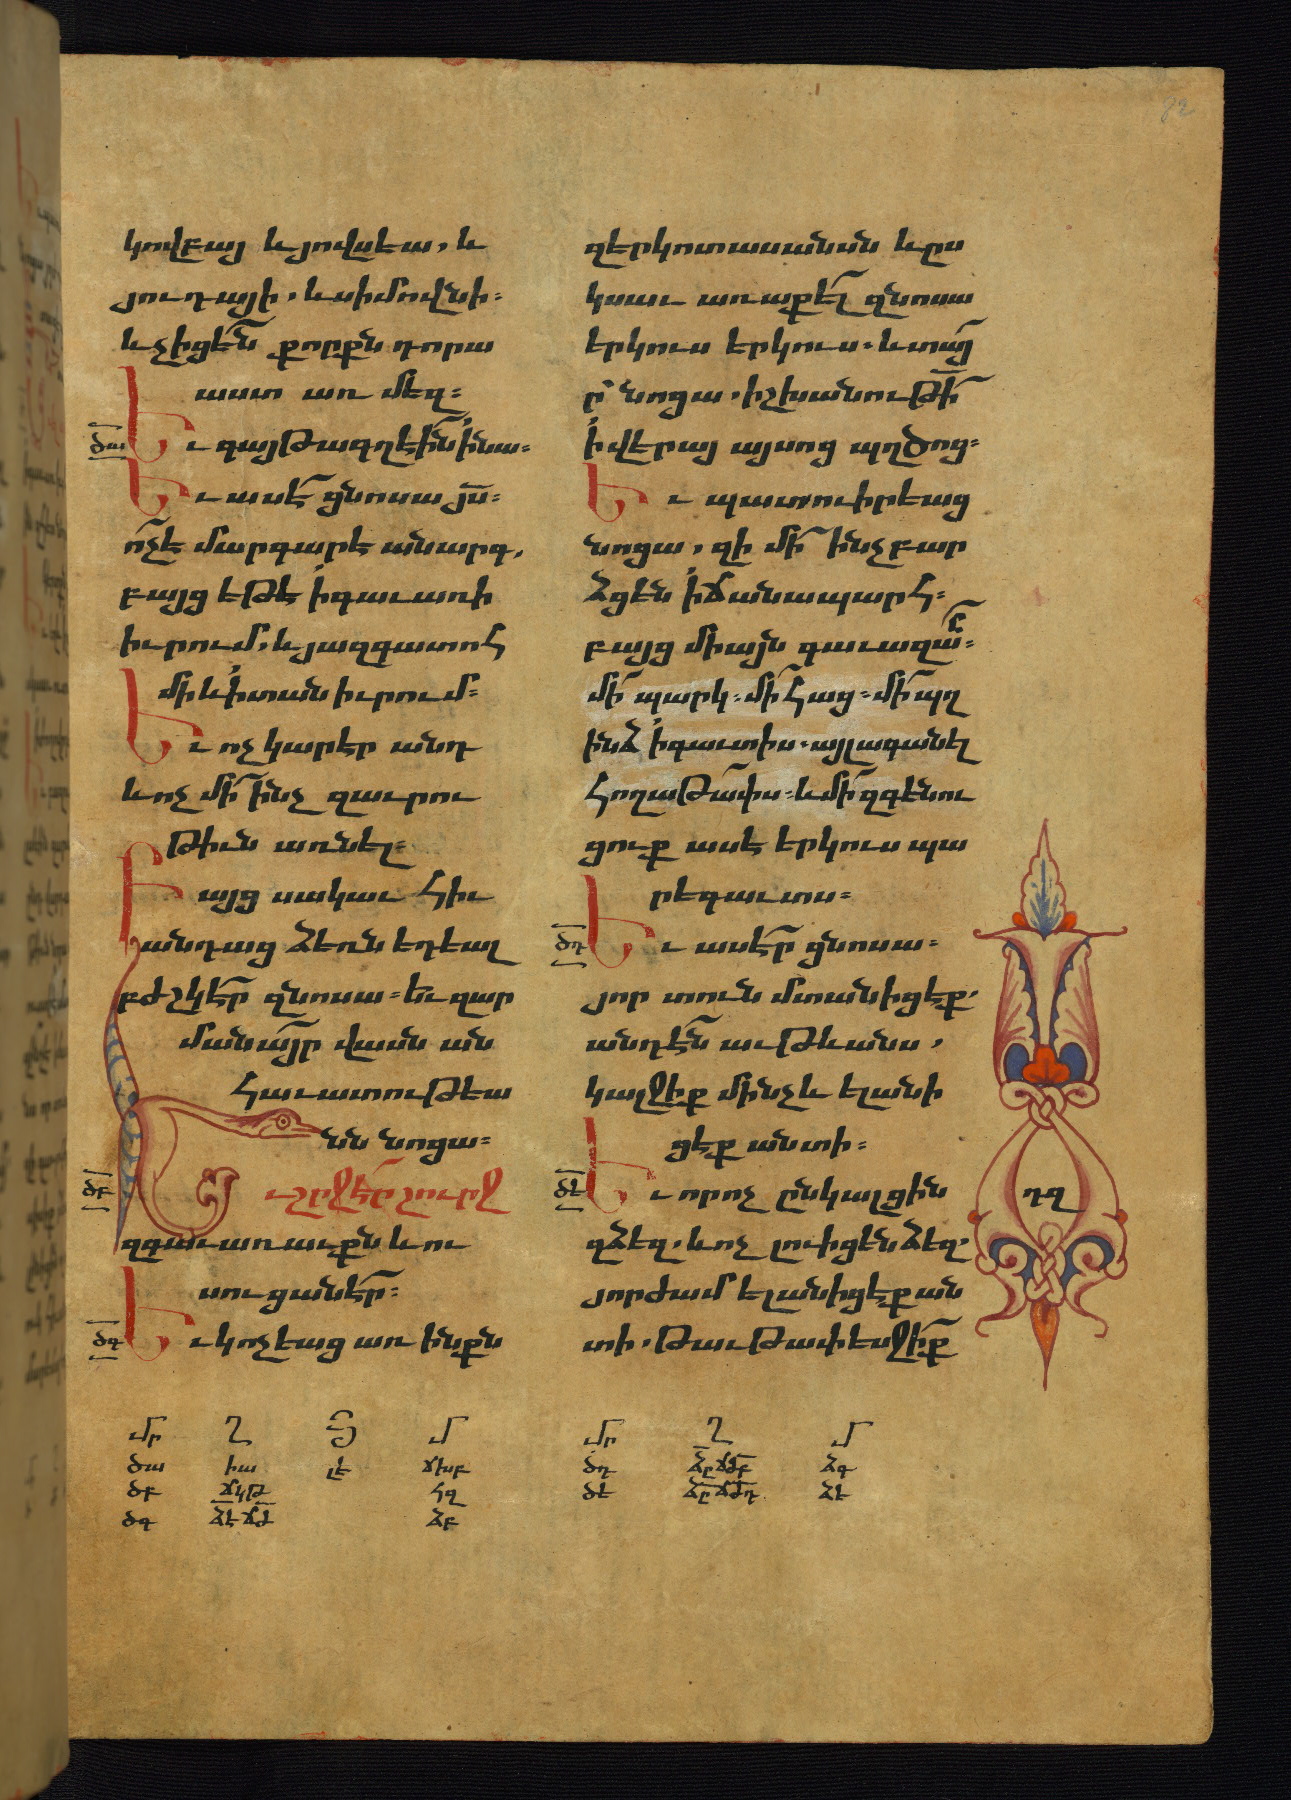 82
կովբայ և յովսեա, և
յուդայի, և սիմովնի։
և չիցե՞ն քորքն դորա
աստ առ մեզ։
ծա Եւ գայթագղէին ի նա։
Եւ ասէ ցնոսա յս։
ո՞չ է մարգարէ անարգ,
բայց եթե ի գաւառի
իւրում, և յազգատոհ
մի և ի տան իւրում։
Եւ ոչ կարէր անդ
և ոչ մի ինչ զաւրու
թիւն առնել։
Բայց սակաւ հիւ
անդաց ձեռն եդեալ
բժշկէր զնոսա։ և զար
մանայր վասն ան
հաւատութեա
նն նոցա։
ծբ Եւ շրջէր շուրջ
զգաւառաւքն և ու
սուցանէր։
ծգ Եւ կոչեաց առ ինքն
զերկոտասանսն և ըս
կսաւ առաքել զնոսա
երկուս երկուս. և տայ
ր նոցա, իշխանութի
ի վերայ այսոց պղծոց։
Եւ պատուիրեաց
նոցա, զի մի ինչ բար
ձցեն ի ճանապարհ։
բայց միայն գաւազան։
մի պարկ. մի հաց. մի պղ
ինձ ի գաւտիս. այլ ագանել
հողաթափս. և մի զգենու
ցուք ասէ երկուս պա
րեգաւտս։
ծդ Եւ ասէր ցնոսա։
յոր տուն մտանիցէք,
անդէն աւթևանս,
կալջիք մինչև ելանի
ցէք անտի։
ծե Եւ որ ոչ ընկալցին
զձեզ, և ոչ լուիցեն ձեզ,
յորժամ ելանիցէք ան
տի, թաւթափեսջիք
դզ
մր ղ յ մ
ծա իա լե ճխբ
ծբ ճկթ հզ
ծգ ձէ ճժ ձբ
մր ղ մ
ծդ ձը ճժբ ձգ
ծե ձը ճժդ ձե